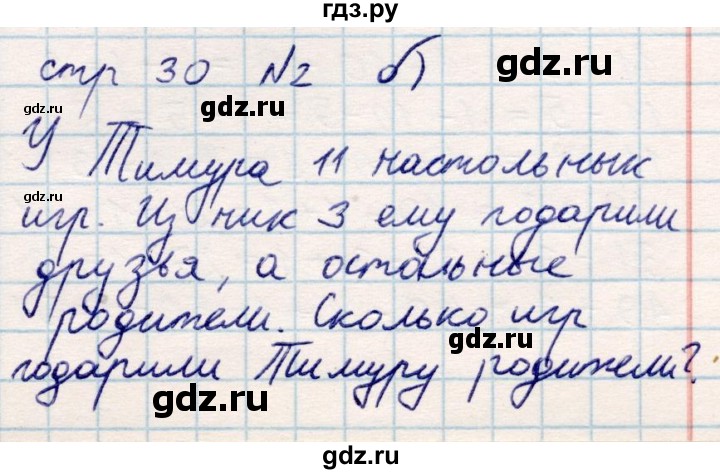 гдз.ру
стр 30 №2 б)
gdz.ru
gdz.ru
gdz.ru
У Тимура 11 настольных
gdz.ru
gdz.ru
игр. Из них 3 ему подарили
друзья, а остальные
gdz.ru
gdz.ru
родители. Сколько игр
gdz.ru
подарили Тимуру родители?
gdz.ru
gdz.ru